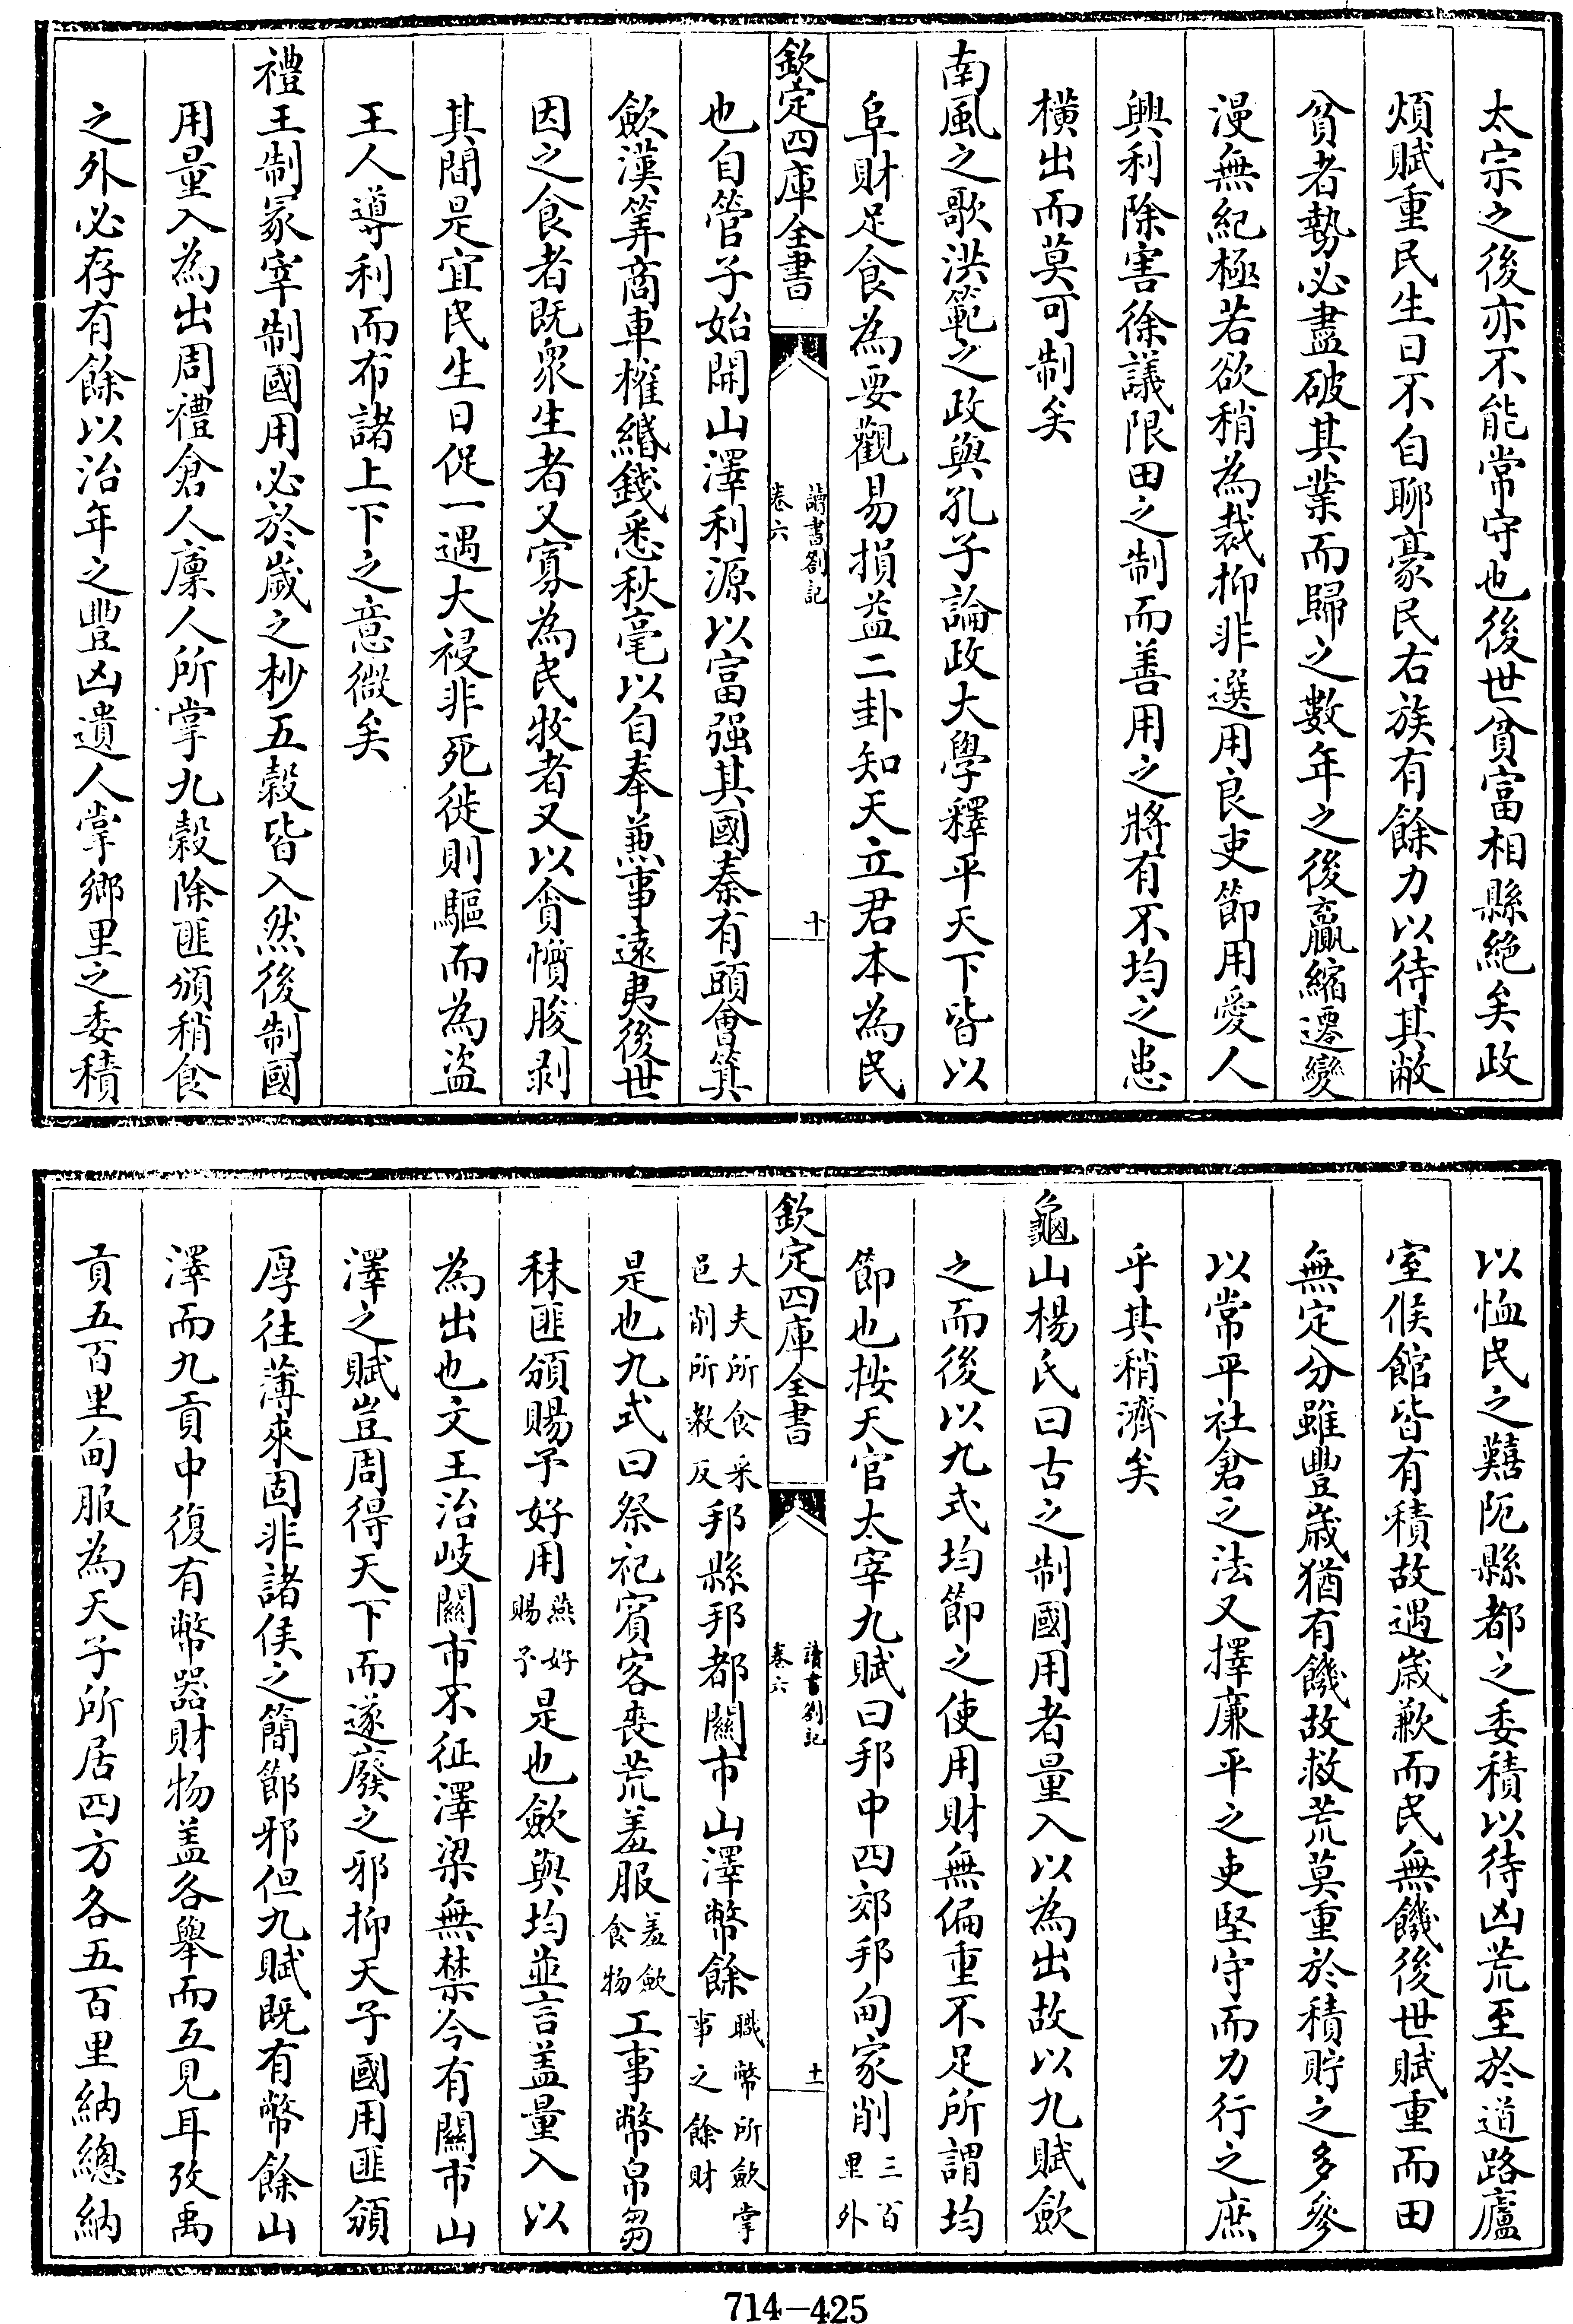 太宗之後亦不能常守也後世貧富相縣絶矣政
煩賦重民生日不自聊豪民右族有餘力以待其敝
貧者勢必盡破其業而歸之數年之後贏縮遷變
漫無紀極若欲稍為裁抑非選用良吏節用愛人
興利除害徐議限田之制而善用之將有不均之患
橫出而莫可制矣
南風之歌洪範之政與孔子論政大學釋平天下皆以
阜財足食為要觀易損益二卦知天立君本為民
欽定四庫全書
讀書劄記
卷六
十
也自管子始開山澤利源以富强其國秦有頭會箕
歛漢筭商車榷緡錢悉秋毫以自奉兼事遠夷後世
因之食者既衆生者又寡為民牧者又以貪惏朘剥
其間是宜民生日促一遇大祲非死徙則驅而為盜
王人導利而布諸上下之意微矣
禮王制冢宰制國用必於歲之杪五穀皆入然後制國
用量入為出周禮倉人廩人所掌九穀除匪頒稍食
之外必存有餘以治年之豐凶遺人掌鄉里之委積
以恤民之囏阨縣都之委積以待凶荒至於道路廬
室候館皆有積故遇歲歉而民無饑後世賦重而田
無定分雖豐歲猶有饑故救荒莫重於積貯之多參
以常平社倉之法又擇廉平之吏堅守而力行之庶
乎其稍濟矣
龜山楊氏曰古之制國用者量入以為出故以九賦歛
之而後以九式均節之使用財無偏重不足所謂均
節也按天官太宰九賦曰邦中四郊邦甸家削三百里外
欽定四庫全書
讀書劄記
卷六
十一
大夫所食采邑削所教反邦縣邦都關市山澤幣餘職幣所歛掌事之餘財
是也九式曰祭祀賓客喪荒羞服羞歛食物工事幣帛芻
秣匪頒賜予好用燕好賜予是也歛與均並言盖量入以
為出也文王治岐關市不征澤梁無禁今有關市山
澤之賦豈周得天下而遂廢之邪抑天子國用匪頒
厚徃薄來固非諸侯之簡節邪但九賦既有幣餘山
澤而九貢中復有幣器財物盖各舉而互見耳攷禹
貢五百里甸服為天子所居四方各五百里納總納
714-425